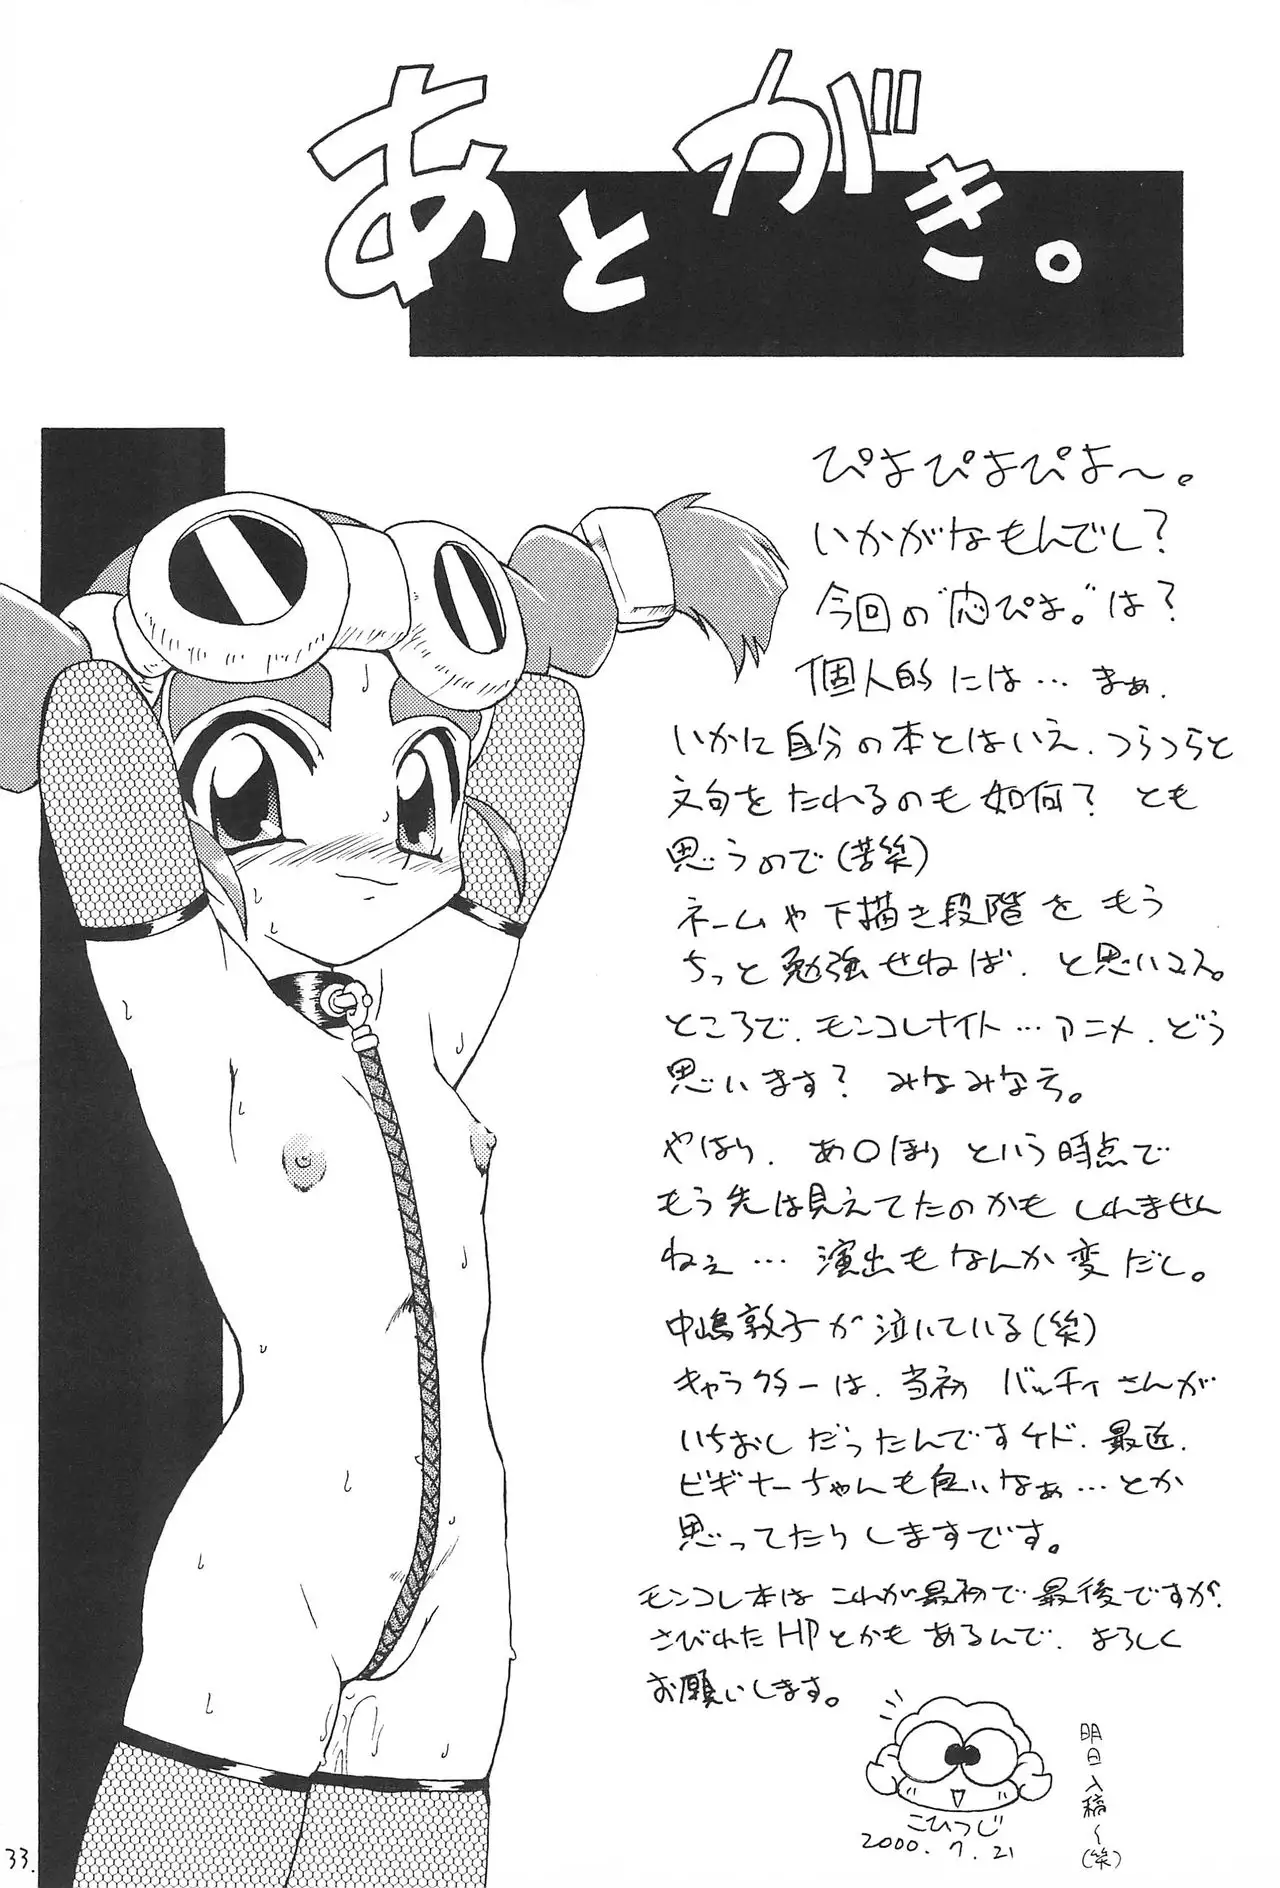 あとがき。
ぴよぴよぴよ〜。
いかがなもんでし?
今回の"応ぴよ。"は?
個人的には…まぁ、
いかに自分の本とはいえ、つらつらと
文句をたれるのも如何? とも
思うので(苦笑)
ネームや下描き段階をもう
ちっと勉強せねば、と思いマス。
ところで、モンコレナイト…アニメ、どう
思います? みなみなさ。
やはり、あ○ほりという時点で
もう先は見えてたのかもしれません
ねぇ…演出もなんか変だし。
中嶋敦子が泣いている(笑)
キャラクターは、当初 バッチィさんが
いちおしだったんですケド、最近、
ビギナーちゃんも良いなぁ…とか
思ってたらしますです。
モンコレ本はこれが最初で最後ですが、
さびれたHPとかもあるんで、よろしく
お願いします。
こひつじ
2000.7.21
明日入稿〜(笑)
33.